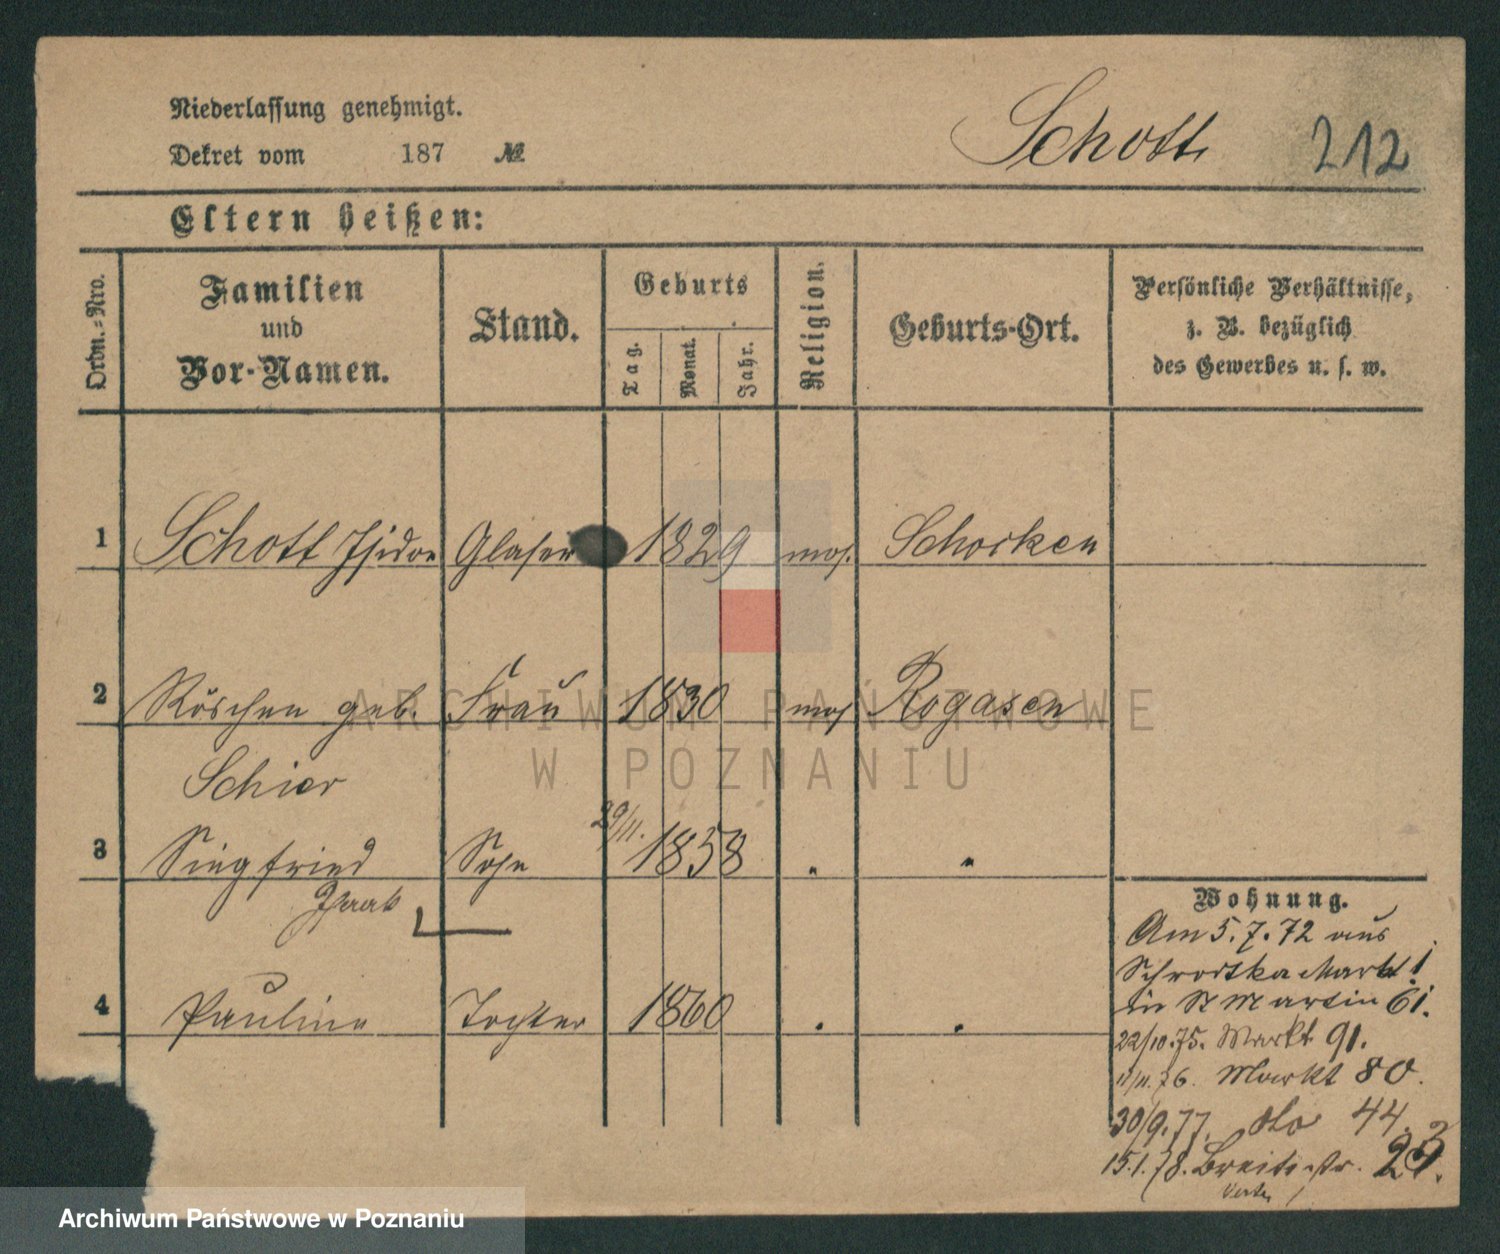 Niederlassung genehmigt.
Dekret vom 187 №
Schott 212
Eltern heißen:
Ordn.-Nro.
Familien
und
Vor-Namen.
Stand.
Geburts
Tag.
Monat.
Jahr.
Religion.
Geburts-Ort.
Persönliche Verhältnisse,
z. B. bezüglich
des Gewerbes u. s. w.
1 Schott Isidor Glaser 1829 mos. Schocken
2 Röschen geb. Frau 1830 mos Rogasen
Schier
3 Siegfried Sohn 29/11. 1858 " "
Isaak
4 Pauline Tochter 1860 " "
Wohnung.
Am 5.7.72 aus
Schrodka Markt 1
in St Martin 61.
22/10.75. Markt 91.
11/11.76. Markt 80.
30/9.77. do 44.
15.1.78. Breitestr. 23.
ARCHIWUM PAŃSTWOWE
W POZNANIU
Archiwum Państwowe w Poznaniu